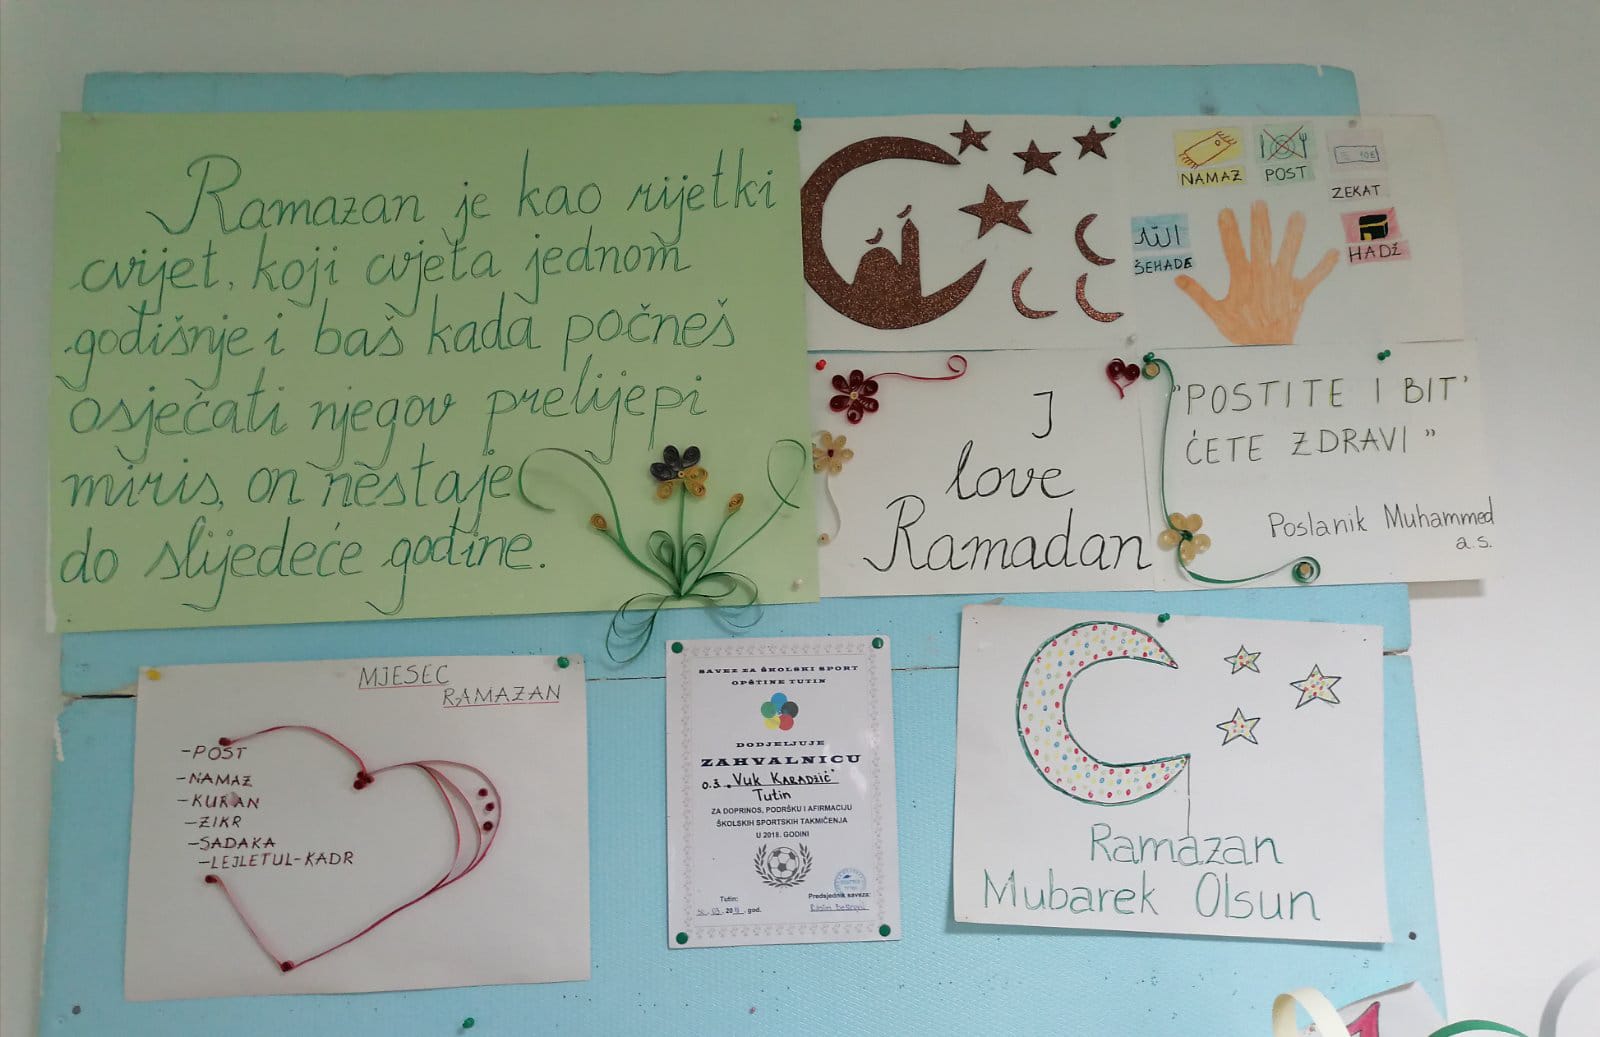 Ramazan je kao rijetki
cvijet, koji cvjeta jednom
godišnje i baš kada počneš
osječati njegov prelijepi
miris, on nestaje
do slijedeće godine.
NAMAZ
POST
10€
ZEKAT
الله
ŠEHADE
HADŽ
I
love
Ramadan
"POSTITE I BIT'
ĆETE ZDRAVI"
Poslanik Muhammed
a.s.
MJESEC
RAMAZAN
-POST
-NAMAZ
-KURAN
-ZIKR
-SADAKA
-LEJLETUL-KADR
SAVEZ ZA ŠKOLSKI SPORT
OPŠTINE TUTIN
DODJELJUJE
ZAHVALNICU
O.Š. „Vuk Karadžić"
Tutin
ZA DOPRINOS, PODRŠKU I AFIRMACIJU
ŠKOLSKIH SPORTSKIH TAKMIČENJA
U 2018. GODINI
Tutin:
Predsjednik saveza:
god.
Ramazan
Mubarek Olsun